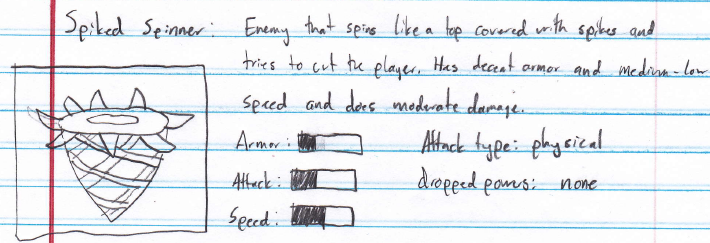 Spiked Spinner: Enemy that spins like a top covered with spikes and
tries to cut the player. Has decent armor and medium-low
speed and does moderate damage.
Armor: Attack type: physical
Attack: dropped powers: none
Speed: